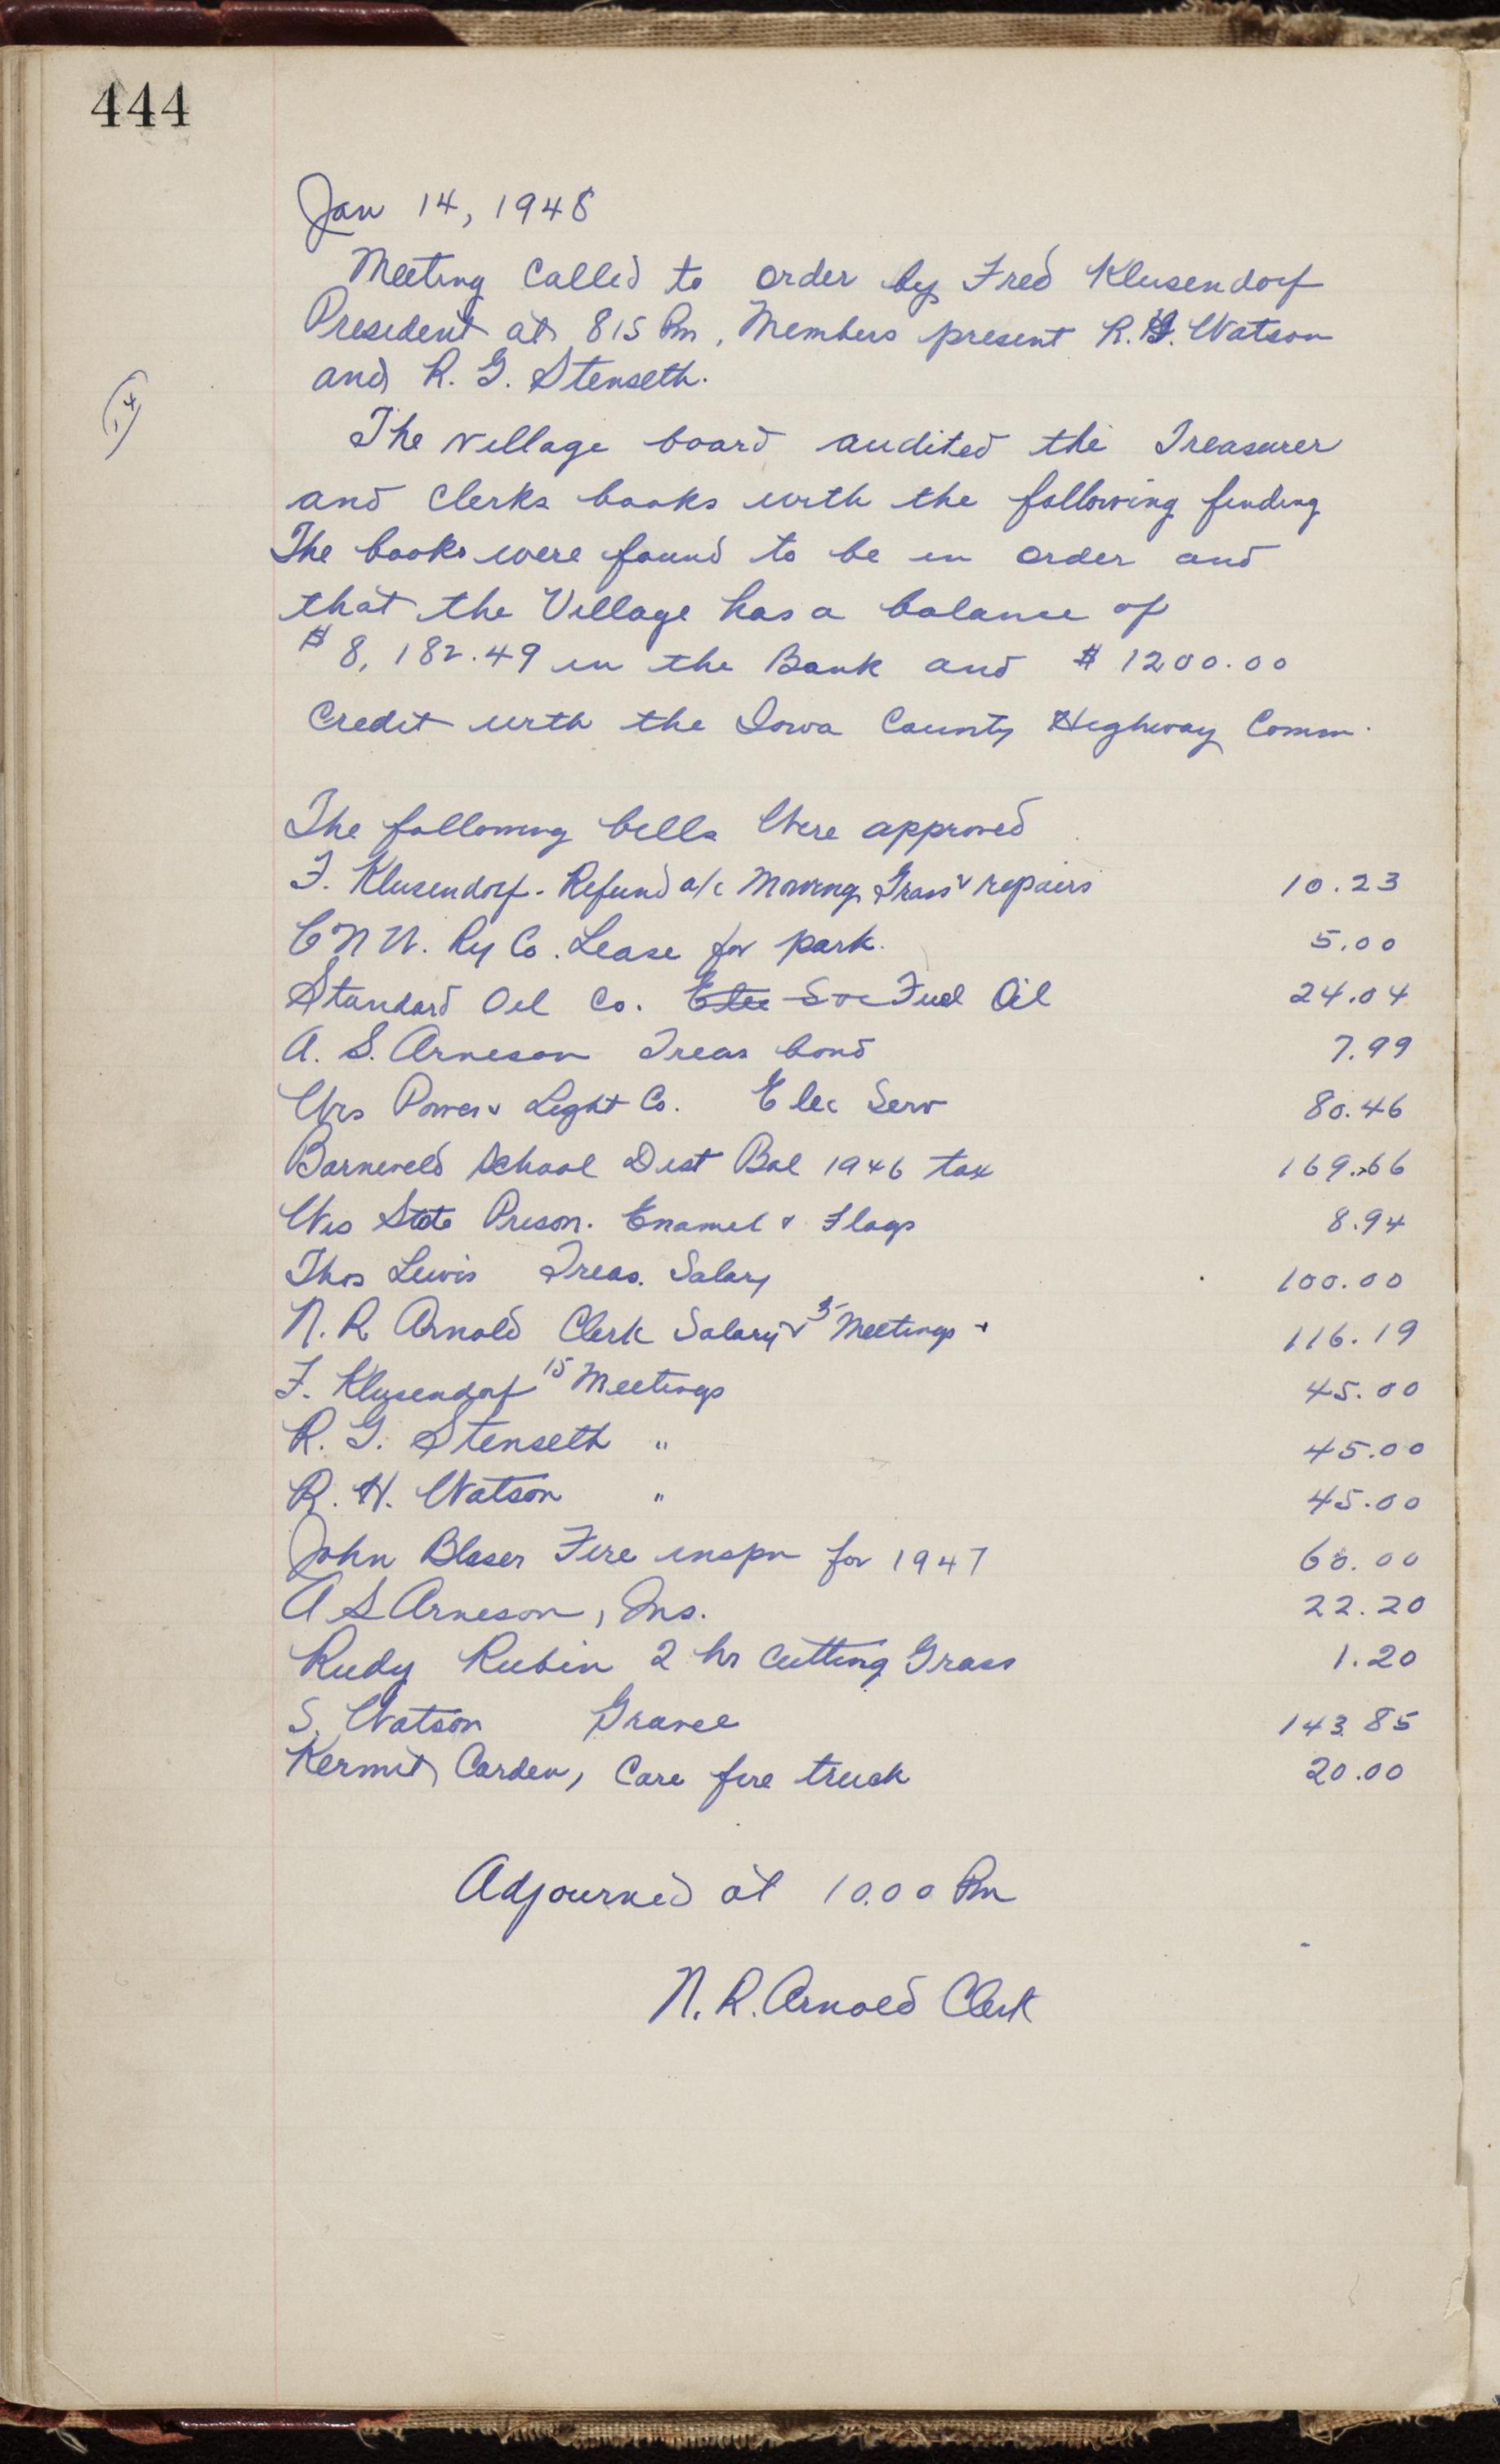 444
Jan 14, 1948
Meeting Called to order by Fred Klusendorf
President at 815 Pm, Members present R.H. Watson
and R. G. Stenseth.
The village board audited the Treasurer
and Clerks books with the following finding
The books were found to be in order and
that the Village has a balance of
$8,182.49 in the Bank and $1200.00
Credit with the Iowa County Highway Comm.
The following bills Were approved
F. Klusendorf. Refund a/c Mowing Grass & repairs 10.23
C N W. Ry Co. Lease for park. 5.00
Standard Oil Co. Elec Svc Fuel Oil 24.04
A. S. Arneson Treas bond 7.99
Wis Power & Light Co. Elec Serv 80.46
Barneveld School Dist Bal 1946 tax 169.66
Wis State Prison. Enamel & Flags 8.94
Thos Lewis Treas. Salary 100.00
N. R Arnold Clerk Salary & 5 Meetings + 116.19
F. Klusendorf 15 Meetings 45.00
R. G. Stenseth " 45.00
R. H. Watson " 45.00
John Blaser Fire inspn for 1947 60.00
A S Arneson, Ins. 22.20
Rudy Rubin 2 hr Cutting Grass 1.20
S. Watson Gravel 143.85
Kermit Carden, Care fire truck 20.00
Adjourned at 10.00 Pm
N. R. Arnold Clerk